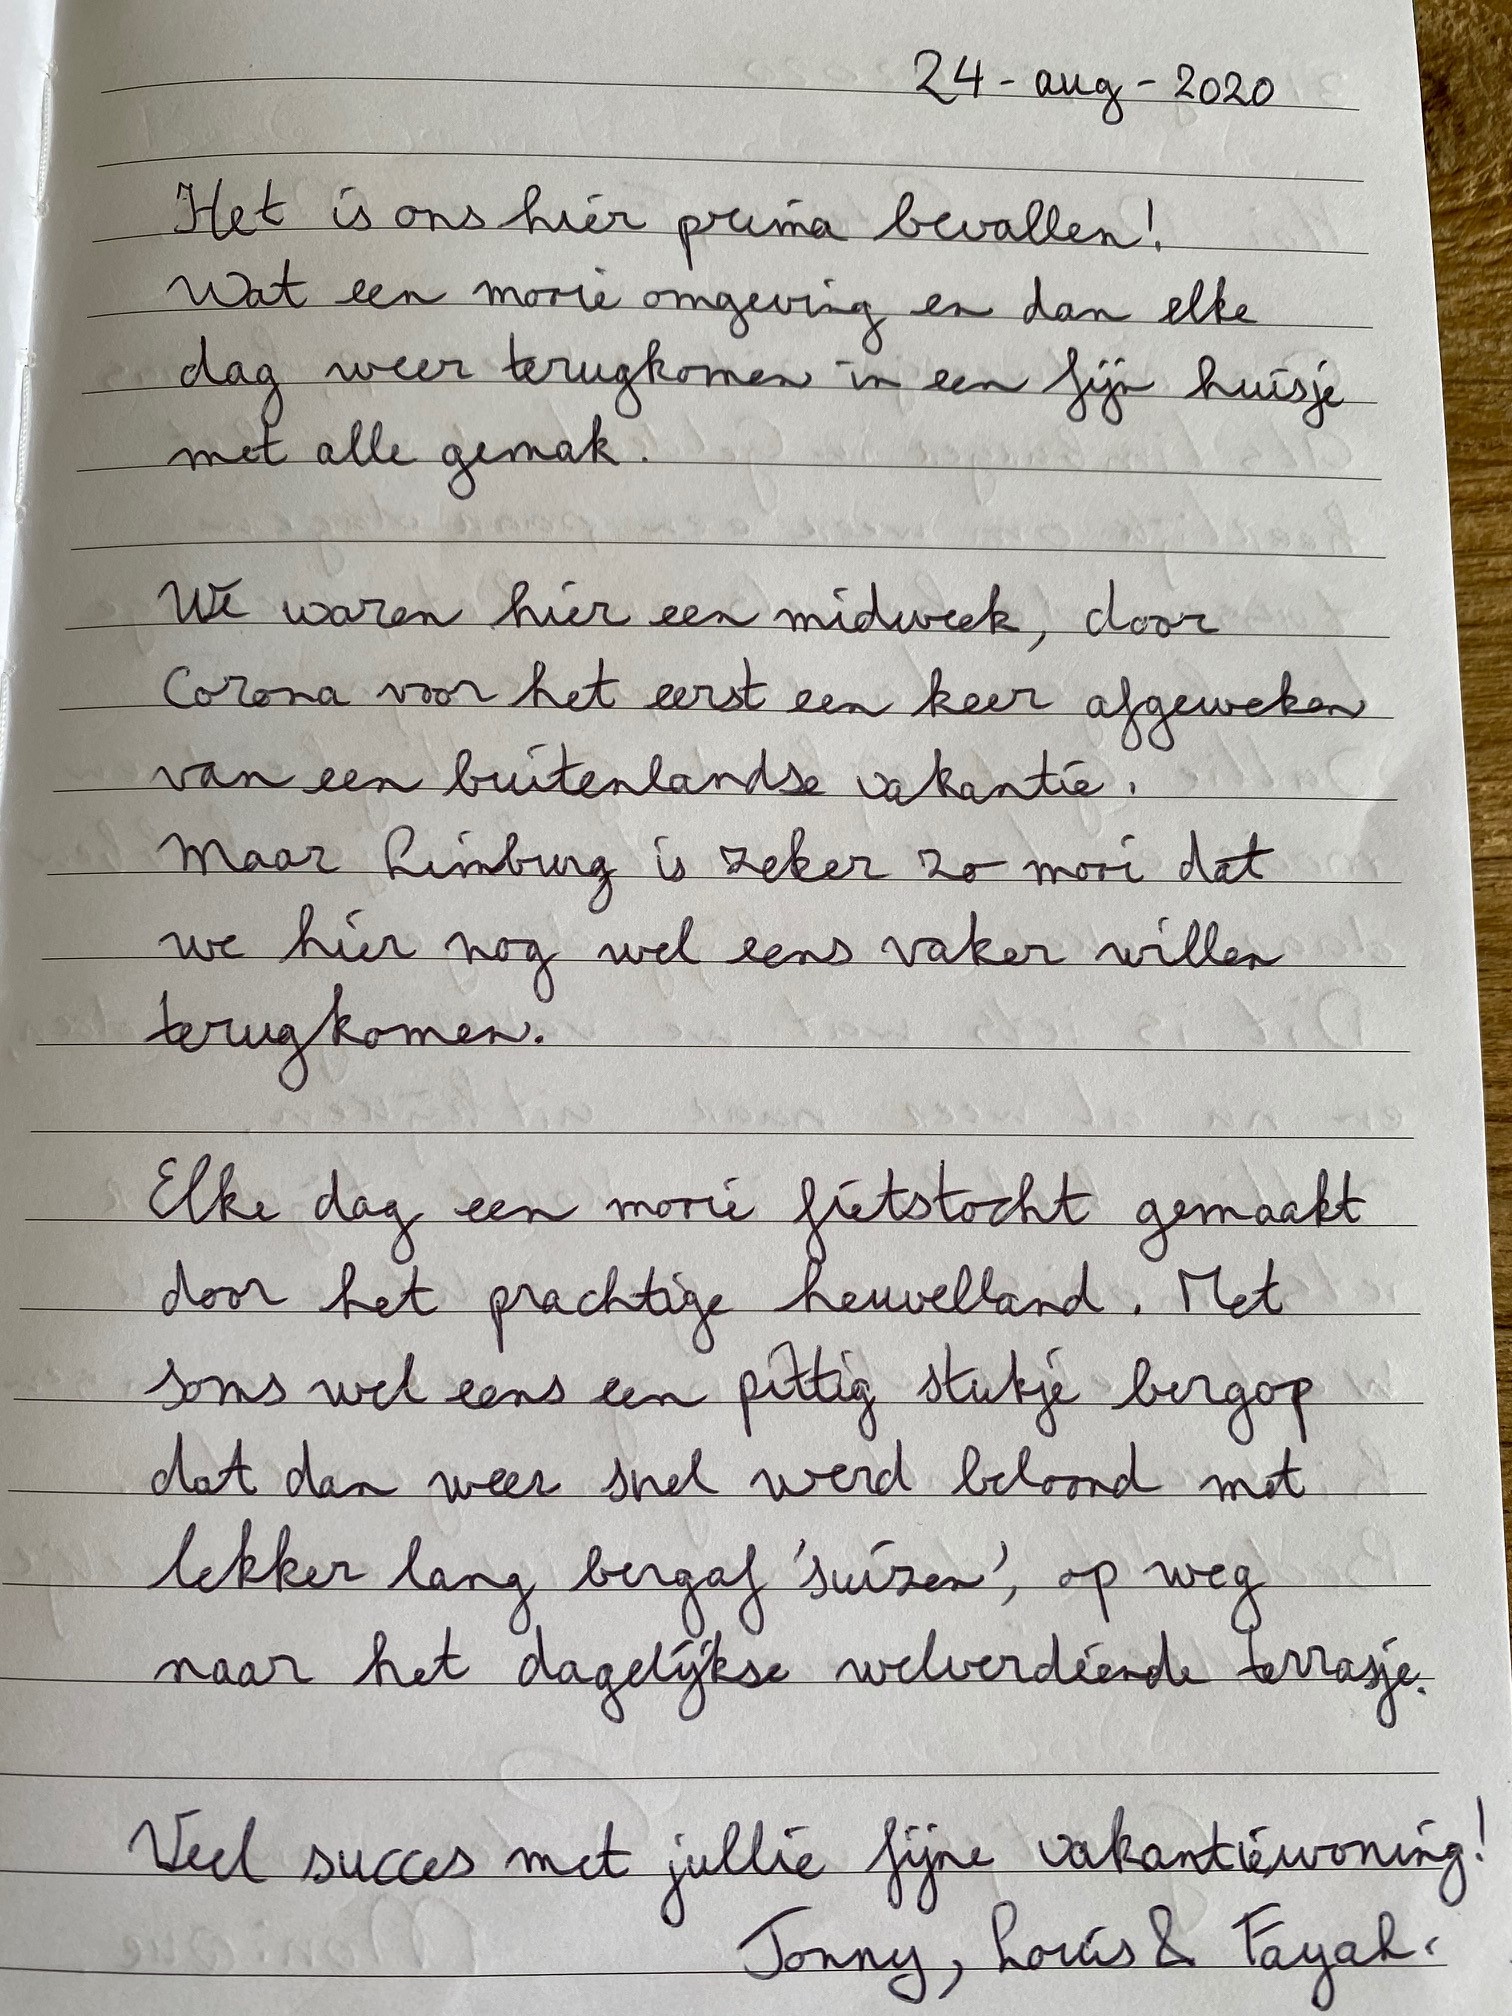 24-aug-2020
Het is ons hier prima bevallen!
Wat een mooie omgeving en dan elke
dag weer terugkomen in een fijn huisje
met alle gemak.
We waren hier een midweek, door
Corona voor het eerst een keer afgeweken
van een buitenlandse vakantie.
Maar Limburg is zeker zo mooi dat
we hier nog wel eens vaker willen
terugkomen.
Elke dag een mooie fietstocht gemaakt
door het prachtige heuvelland. Met
soms wel eens een pittig stukje bergop
dat dan weer snel werd beloond met
lekker lang bergaf 'suizen', op weg
naar het dagelijkse welverdiende terrasje.
Veel succes met jullie fijne vakantiewoning!
Jonny, Louis & Fayah.